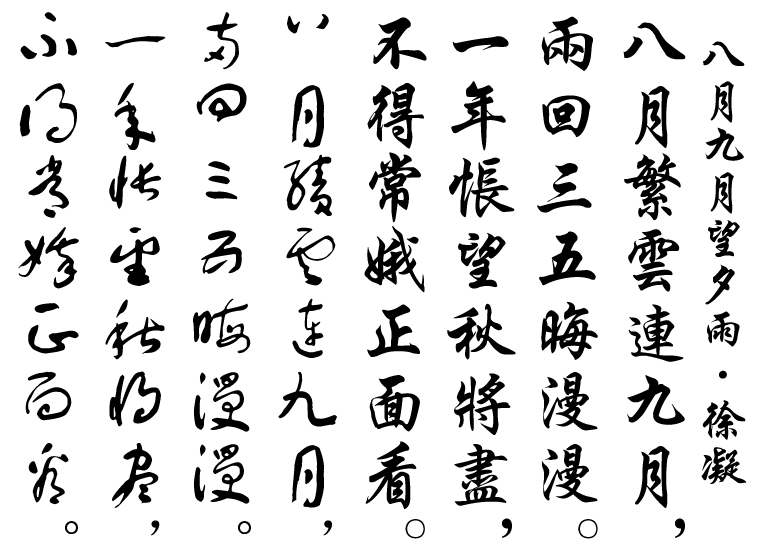 八月九月望夕雨・徐凝
八月繁雲連九月，
兩回三五晦漫漫。
一年悵望秋將盡，
不得常娥正面看。
八月繁雲連九月，
兩回三五晦漫漫。
一年悵望秋將盡，
不得常娥正面看。